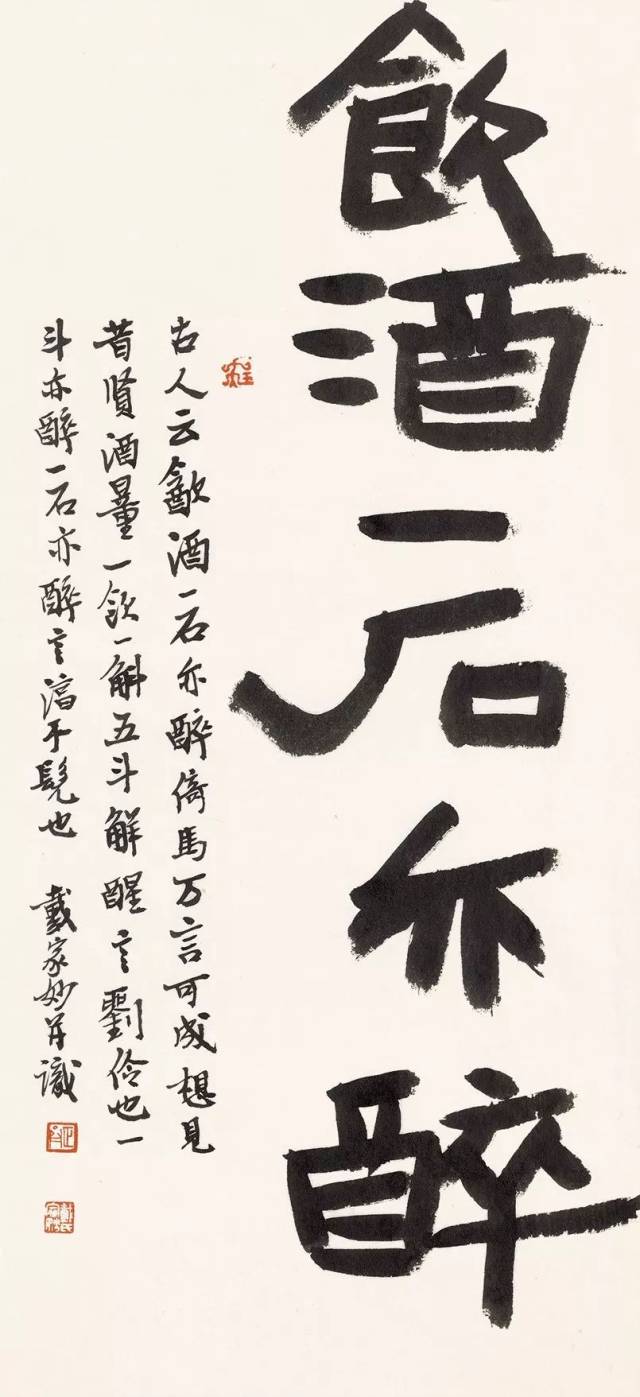 飲酒一石亦醉
古人云㱃酒一石亦醉倚馬万言可成想見
昔賢酒量一飲一斛五斗解醒言劉伶也一
斗亦醉一石亦醉言淳于髡也 戴家妙并識